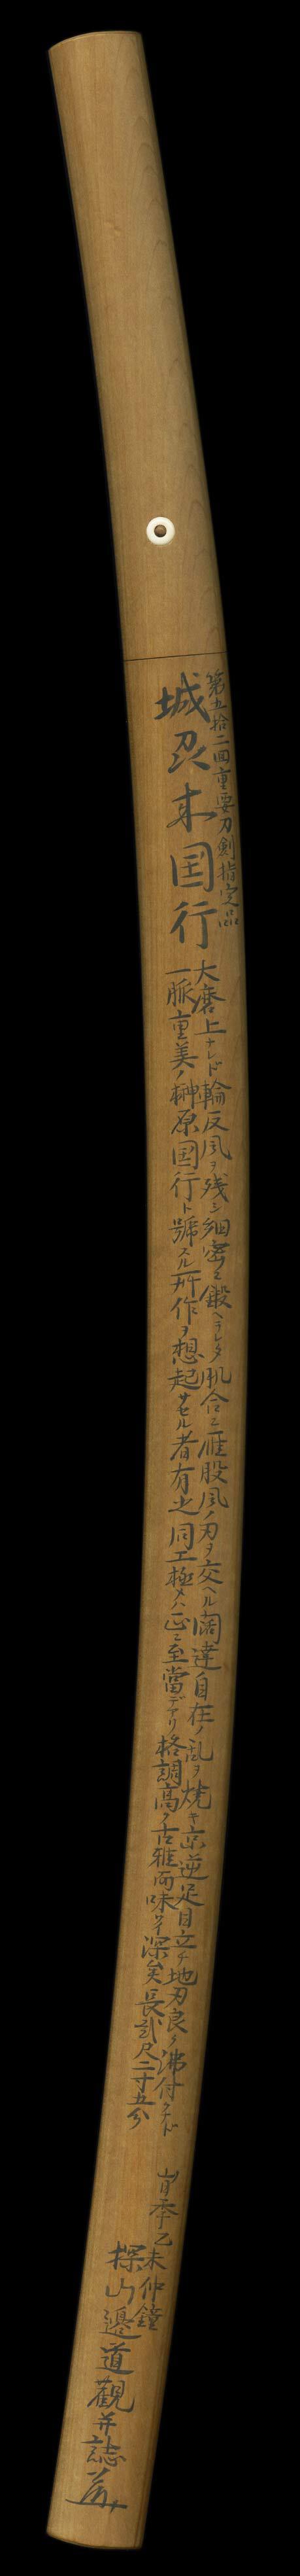 第五拾二回重要刀剣指定品
城刕来国行
大磨上ナレド輪反風ヲ残シ細密ニ鍛ヘラレタ肌合ニ雁股風ノ刃ヲ交ヘル闊達自在ノ乱ヲ焼キ亦逆足目立チ地刃良ク沸付クナド
一脈重美ノ榊原国行ト號スル所作ヲ想起サセル者有之同工極メハ正ニ至當デアリ格調高ク古雅而味ワイ深矣長弐尺二寸五分
峕季乙未仲鐘
探山邉道觀并誌